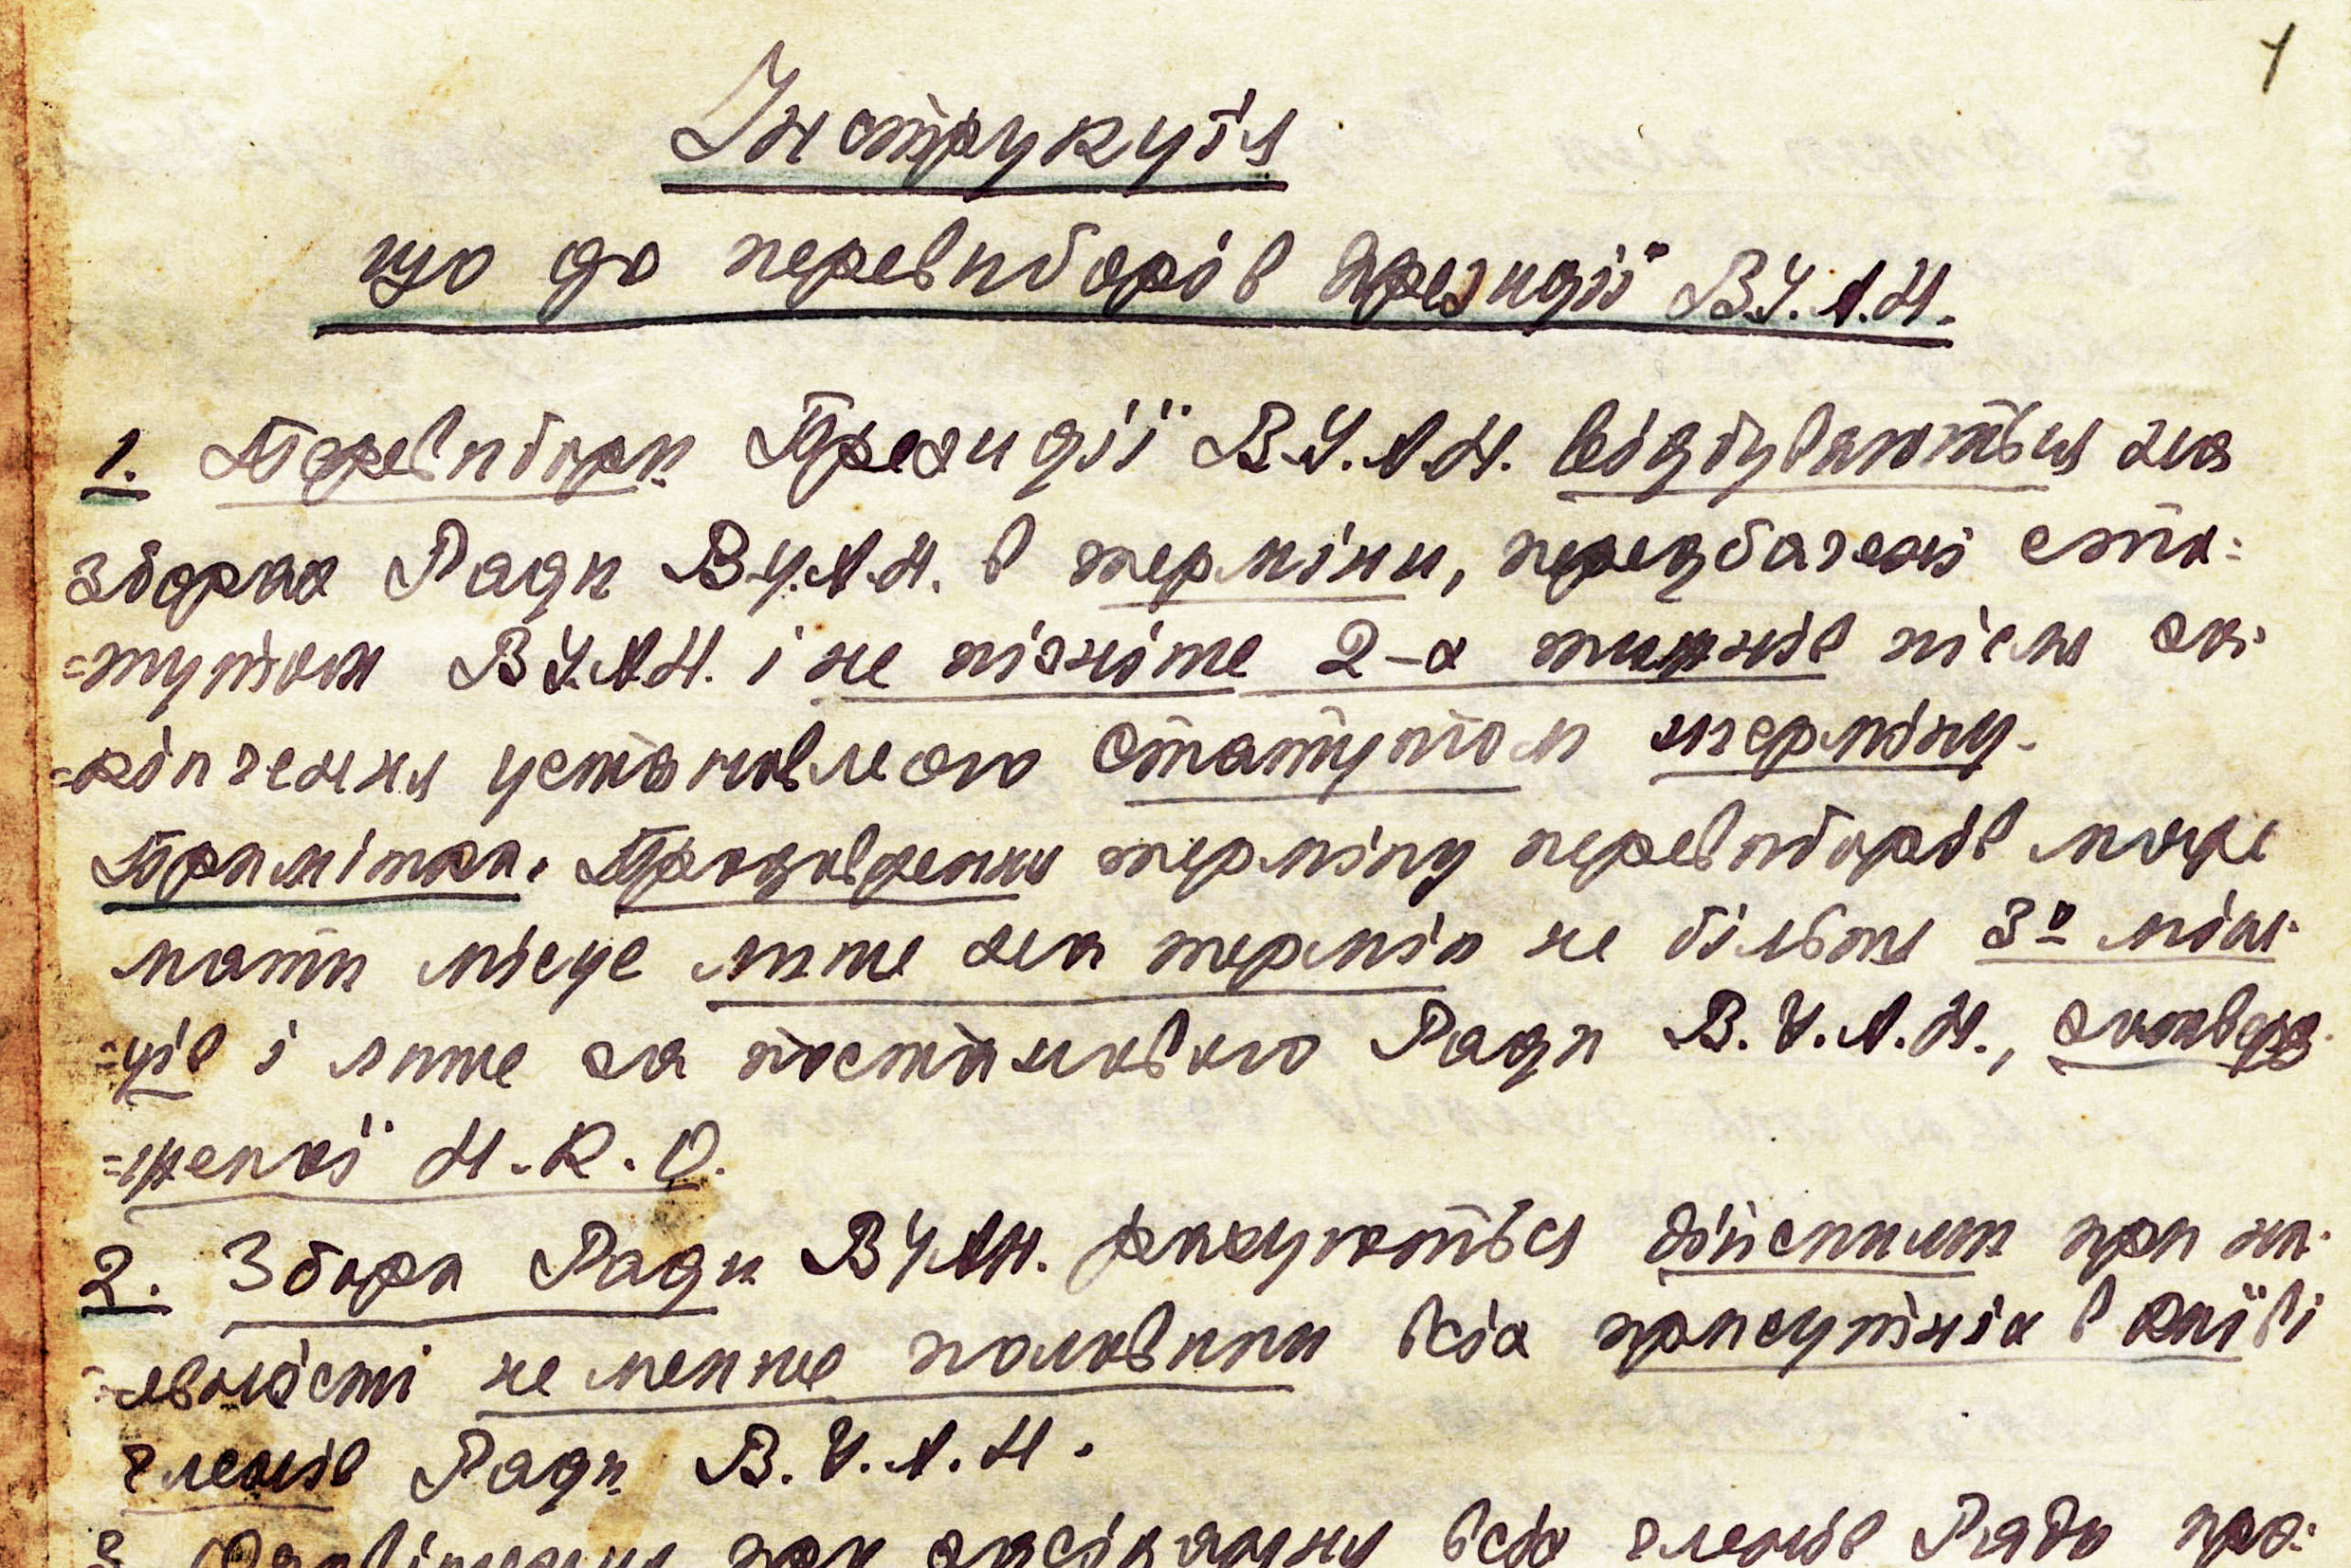 1
Інструкція
що до перевиборів президії В.У.А.Н.
1. Перевибори Президії В.У.А.Н. відбуваються на
зборах Ради В.У.А.Н. в терміни, передбачені ста-
=тутом В.У.А.Н. і не пізніше 2-х тижнів після за-
=кінчення установленого статутом терміну.
Примітка. Продовження терміну перевиборів може
мати місце лише на термін не більш 3х міся-
=ців і лише за постановою Ради В.У.А.Н., затверд-
=женої Н.К.О.
2. Збори Ради ВУАН. рахуються дійсними при на-
=явності не менше половини всіх присутніх в Київі
членів Ради В.У.А.Н.
3. всіх членів Ради про-